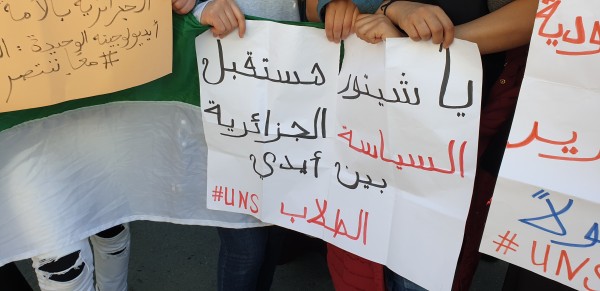 الجزائرية بالأمة
أيديولوجيته الوحيدة :
#معا ننتصر
يا شينور مستقبل
السياسة الجزائرية
بين أيدي
الطلاب #UNS
#UNS